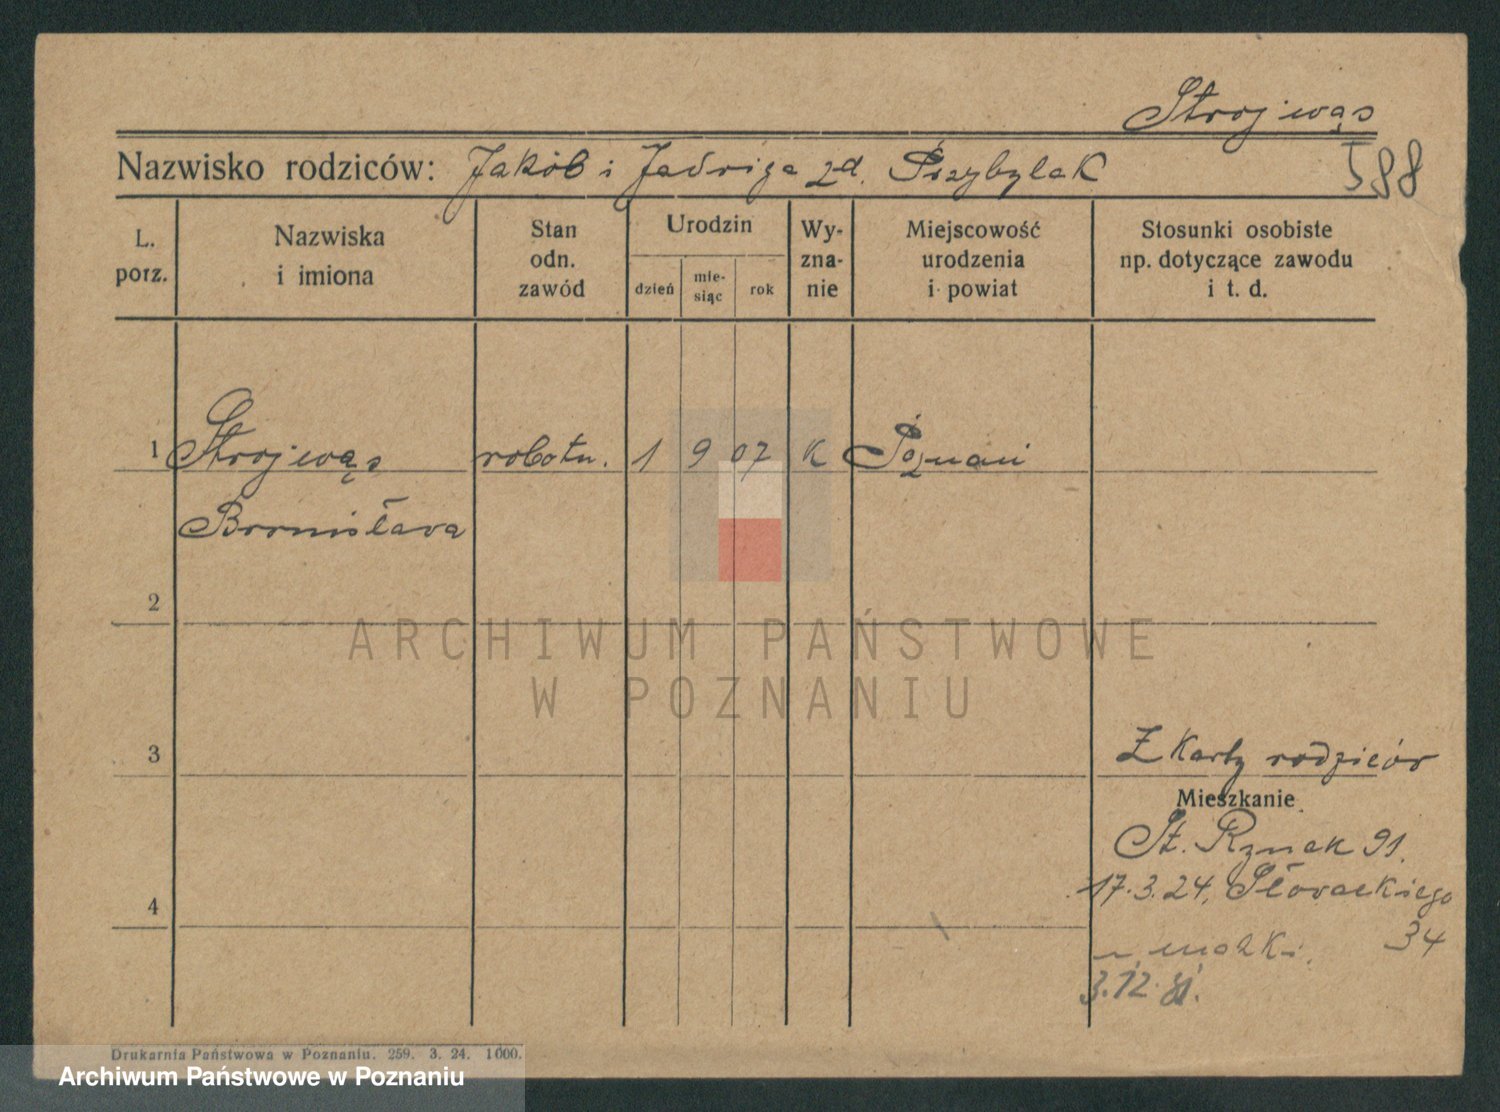 Strojwąs
588
Nazwisko rodziców: Jakób i Jadwiga zd. Przybylak
L. porz.
Nazwiska i imiona
Stan odn. zawód
Urodzin
dzień
mie-siąc
rok
Wy-zna-nie
Miejscowość urodzenia i powiat
Stosunki osobiste np. dotyczące zawodu i t. d.
1 Strojwąs robotn. 1 9 07 K Poznań
Bronisława
2
3
Z Karty rodziców
Mieszkanie
St. Rynek 91.
17.3.24. Słowackiego
34
4
u matki.
3.12.31.
Drukarnia Państwowa w Poznaniu. 259. 3. 24. 1000.
ARCHIWUM PAŃSTWOWE
W POZNANIU
Archiwum Państwowe w Poznaniu